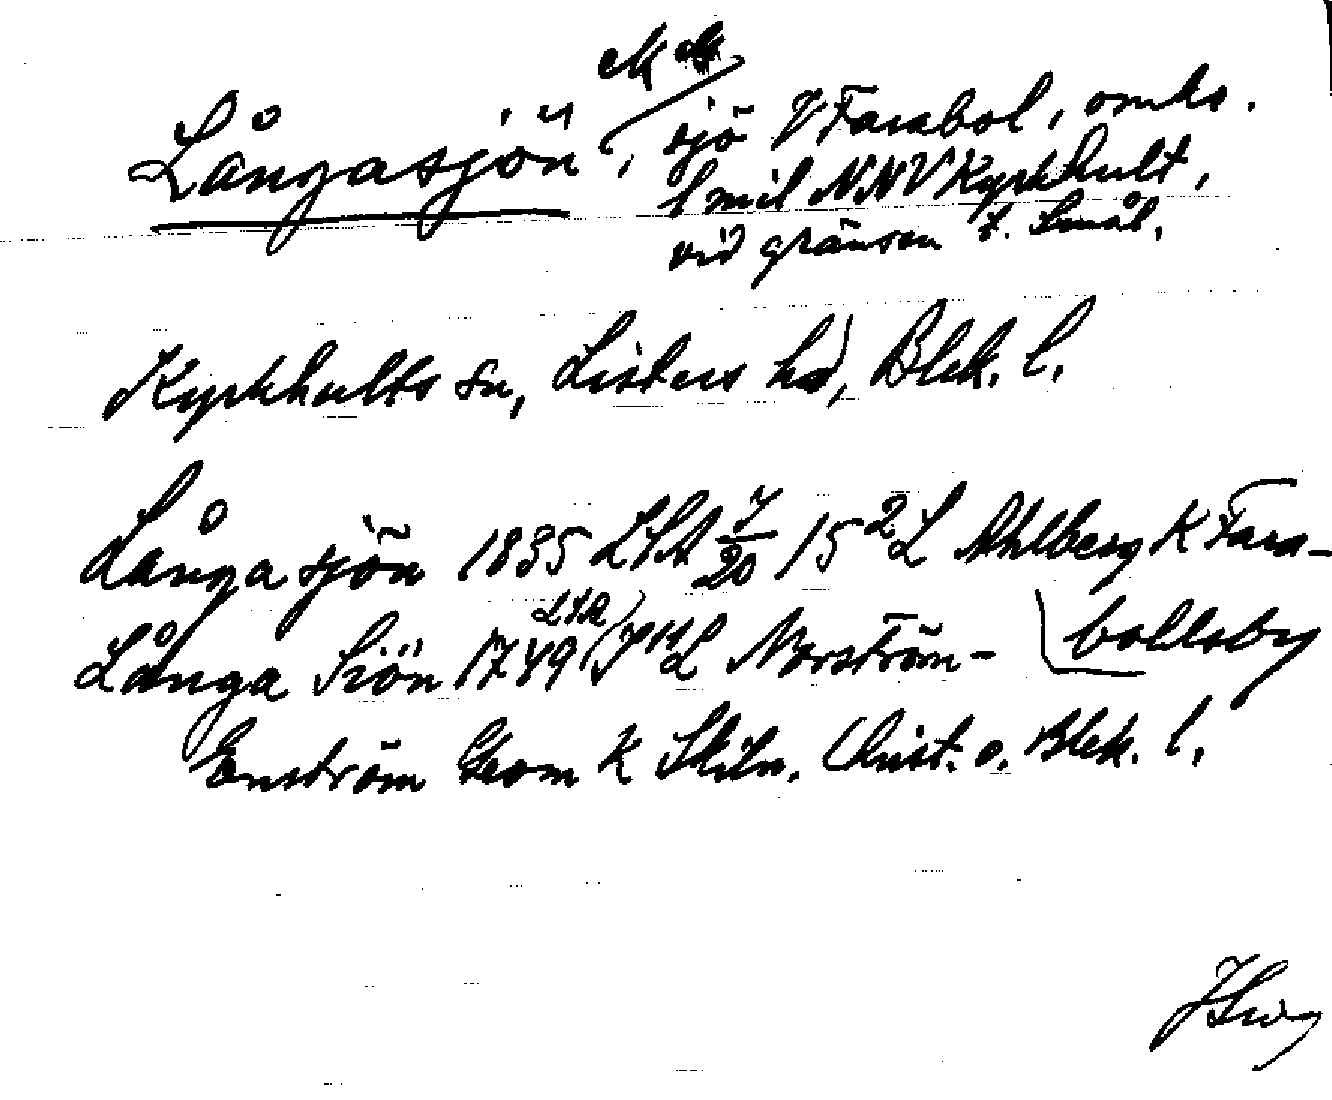 Långasjön, sjö V Farabol, omkr.
1 mil NNV Kyrkhult,
vid gränsen t. Smål.
Kyrkhults sn, Listers hd, Blek. l.
Långa sjön 1835 LSA 7/20 15 2 L Ahlberg K Fara-
bollsby
Långa Siön 1749 LSA L Norström-
Enström Geom K Christ. o. Blek. l.